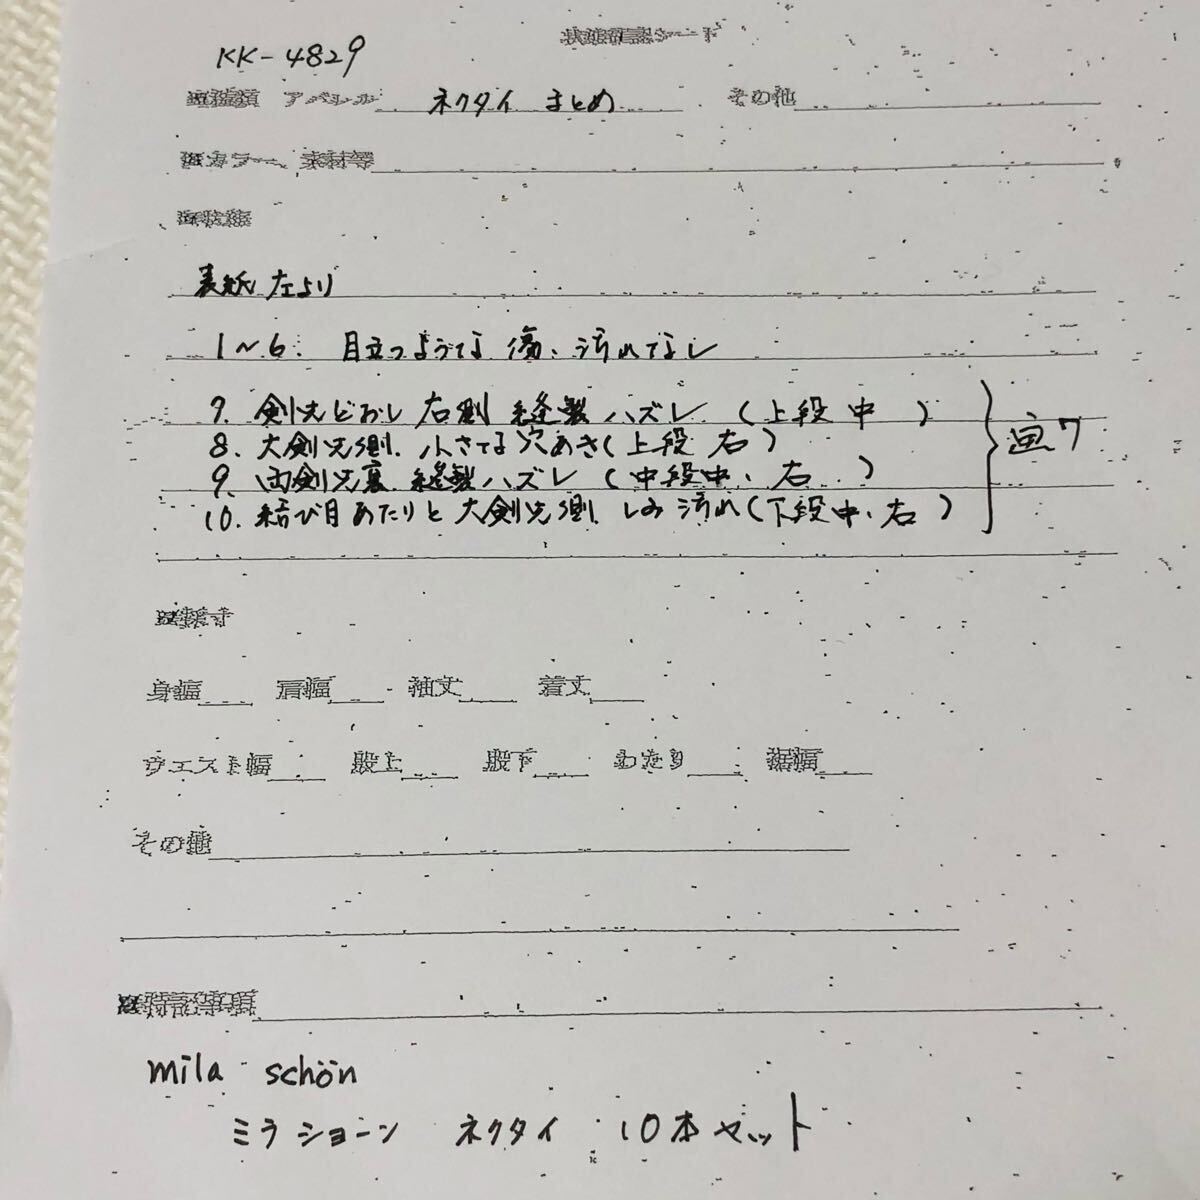 状態確認シート
KK-4829
アパレル ネクタイ まとめ その他
カラー、素材等
表紙 左より
1～6. 目立つような 傷、汚れなし
7. 剣先どおし 右側 縫製ハズレ (上段中)
8. 大剣先側. 小さな穴あき(上段 右)
9. 両剣先裏 縫製ハズレ (中段中、右)
10. 結び目あたりと 大剣先側 しみ 汚れ(下段中、右)
画7
採寸
身幅 肩幅 袖丈 着丈
ウエスト幅 股上 股下 わたり 裾幅
その他
特記事項
mila schön
ミラ ショーン ネクタイ 10本セット